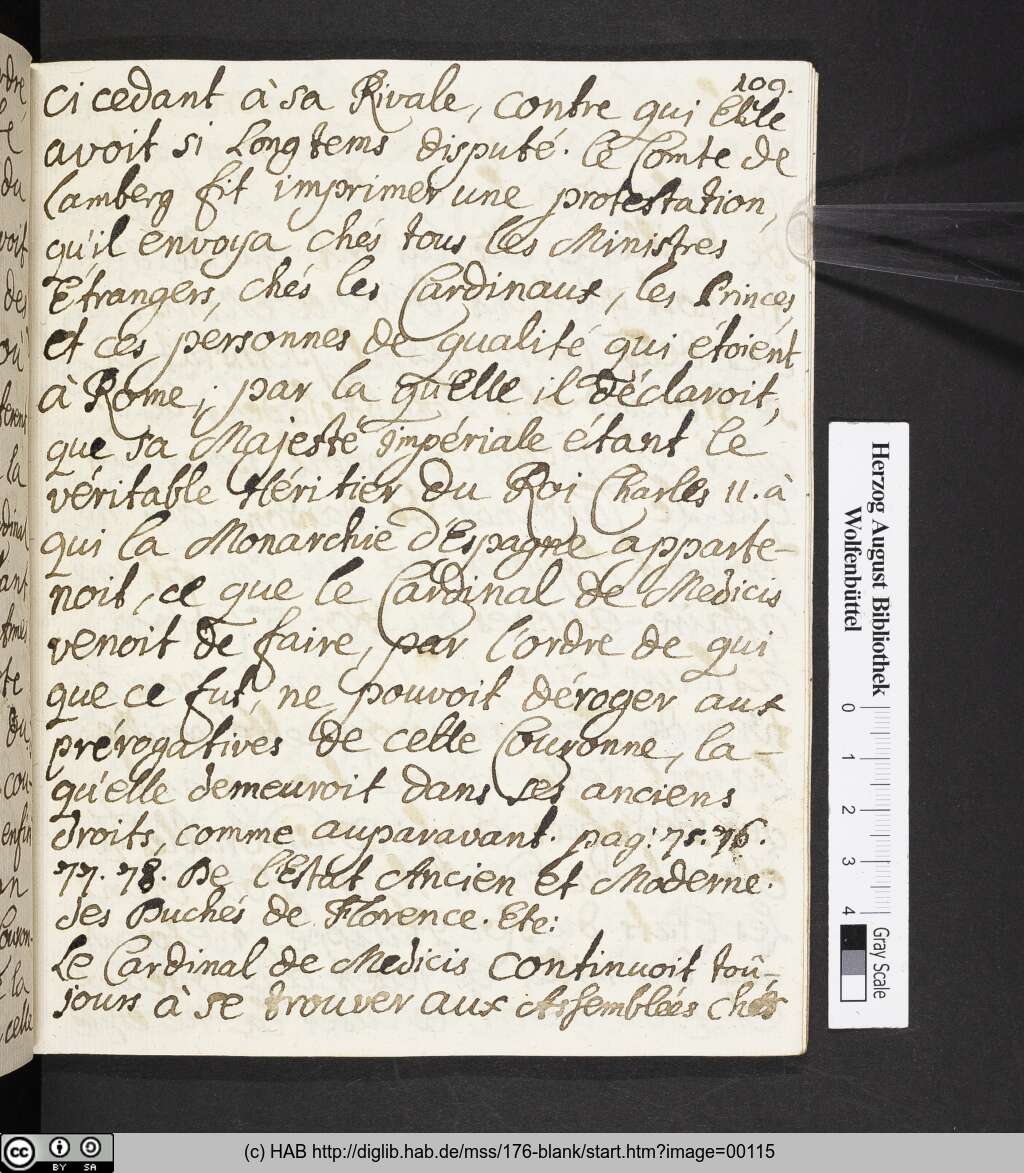 109.
ci cedant à sa Rivale, contre qui Elle
avoit si Longtems disputé. le Comte de
Lamberg fit imprimer une protestation,
qu'il envoya chés tous les Ministres
Étrangers, chés les Cardinaux, les Princes
et ces personnes de qualité qui étoient
à Rome; par la qu'Elle il déclaroit,
que sa Majesté impériale étant le
véritable Héritier du Roi Charles II. à
qui la Monarchie d'Espagne apparte-
noit, ce que le Cardinal de Medicis
venoit de faire, par l'ordre de qui
que ce fut, ne pouvoit déroger aux
prérogatives de cette Couronne, la-
qu'elle demeuroit dans ses anciens
droits, comme auparavant. pag: 75. 76.
77. 78. De l'Estat Ancien et Moderne.
des Duchés de Florence. Etc:
Le Cardinal de Medicis continuoit toû-
jours à se trouver aux Assemblées chés
Herzog August Bibliothek
Wolfenbüttel
0 1 2 3 4
Gray Scale
cc BY SA
(c) HAB http://diglib.hab.de/mss/176-blank/start.htm?image=00115